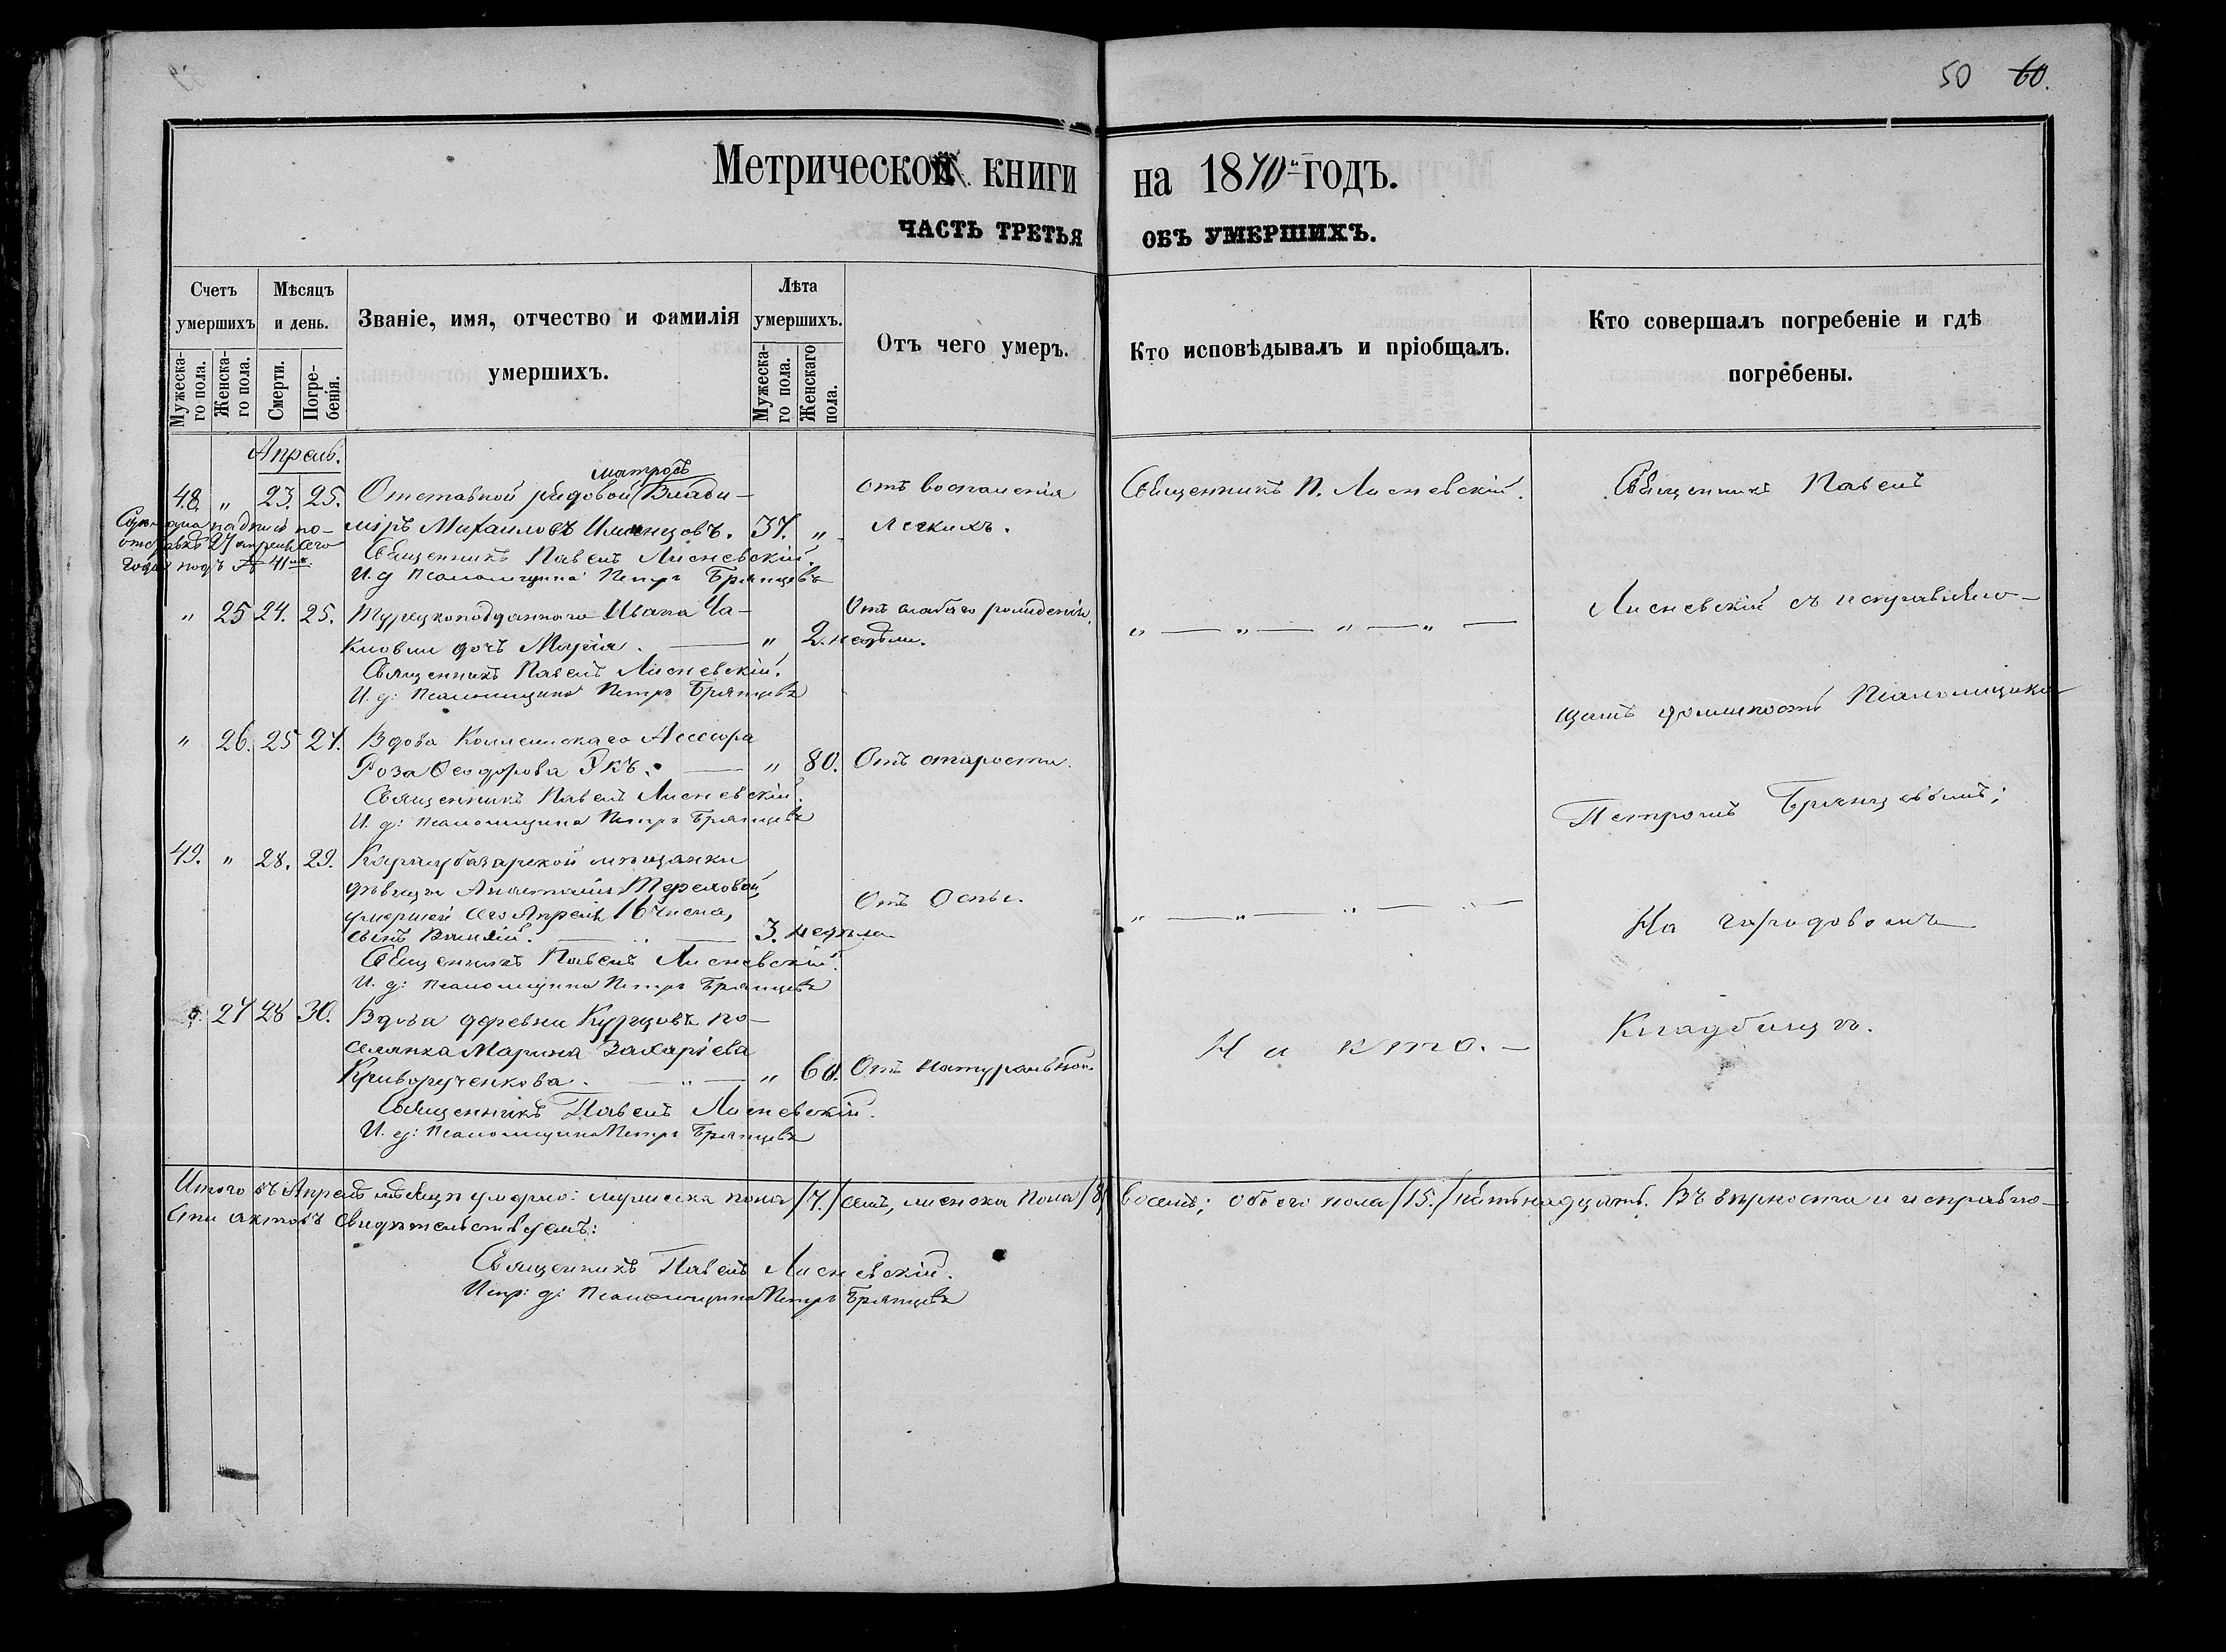 50 60.
Метрической книги на 1870й годъ.
ЧАСТЬ ТРЕТЬЯ ОБЪ УМЕРШИХЪ.
Счетъ умершихъ
Мѣсяцъ и день.
Званіе, имя, отчество и фамилія умершихъ.
Лѣта умершихъ.
Отъ чего умеръ.
Кто исповѣдывалъ и пріобщалъ.
Кто совершалъ погребеніе и гдѣ погребены.
Мужескаго пола.
Женскаго пола.
Смерти.
Погребенія.
Мужескаго пола.
Женскаго пола.
Апрель.
матросъ
48. " 23. 25. Отставной рядовой Влади- отъ воспаленія Священникъ П. Лисневскій. Священникъ Павелъ
міръ Михаиловъ 37. " легкихъ.
надпись по-
27 апреля сего
года подъ № 41
Священникъ Павелъ Лисневскій.
И. д Псаломщика Петръ Брянцевъ
" 25 24. 25. Турецкоподданнаго Ивана Ча- Отъ слабаго рожденія. " — " — " — " — Лисневскій съ исправляю-
кловли дочь Марія. — " 2. недѣли.
Священникъ Павелъ Лисневскій.
И. д: Псаломщика Петръ Брянцевъ
щимъ должность Псаломщика
" 26. 25 27. Вдова Коллежскаго Ассесора
Роза Ѳеодорова Экъ. — " 80. Отъ старости.
Священникъ Павелъ Лисневскій.
И. д: Псаломщика Петръ Брянцевъ
Петромъ Брянцевымъ;
49. " 28. 29. Карасубазарской мѣщанки
дѣвицы Анастасіи Тереховой, Отъ Оспы.
умершей сего Апреля 16 числа, " — " — " — " — На городовомъ
сынъ Василій. — " — 3. недѣли
Священникъ Павелъ Лисневскій.
И. д: Псаломщика Петръ Брянцевъ
". 27 28 30. Вдова деревни Курцовъ по-
селянка Марина Захаріева Никто. — Кладбищѣ.
Криворученкова. — " — " 60. Отъ натуральной.
Священникъ Павелъ Лисневскій.
И. д: Псаломщика Петръ Брянцевъ
Итого въ Апрелѣ мѣсяцѣ умерло: мужеска пола /7./ семь, женска пола /8/ восемь; обоего пола /15./ пятьнадцать. Въ вѣрности и исправно-
сти актовъ свидѣтельствуемъ:
Священникъ Павелъ Лисневскій.
Испр: д: Псаломщика Петръ Брянцевъ